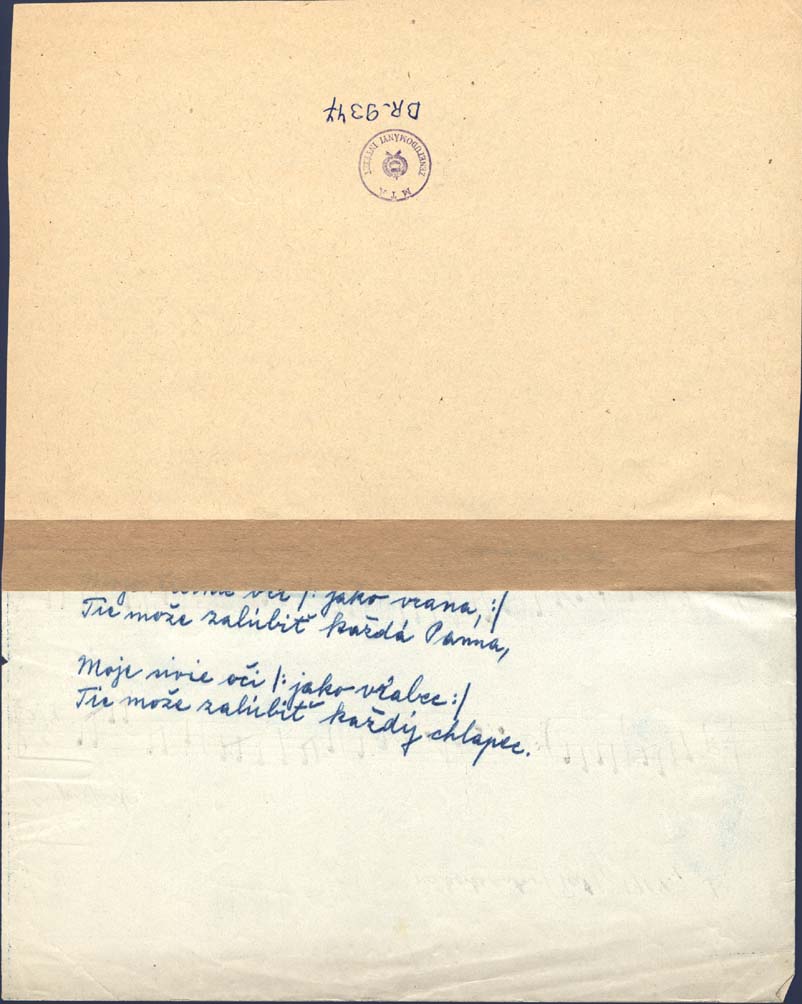 BR-9347
ZENETUDOMÁNYI INTÉZET
M T A
oči /: jako vrana, :/
Tie može zalúbiť každá Panna,
Moje sivie oči /: jako vrabec :/
Tie može zalúbiť každý chlapec.